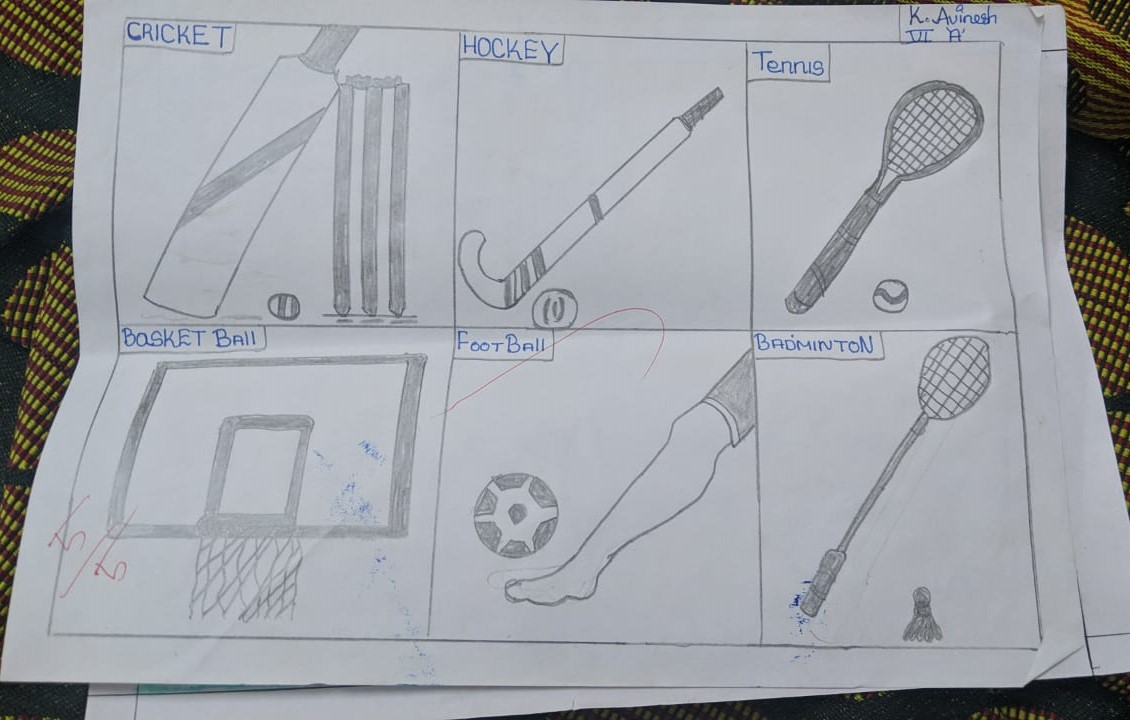 K. Avinesh
VI 'A'
CRICKET
HOCKEY
Tennis
BASKET Ball
FootBall
BADMINTON
5/5